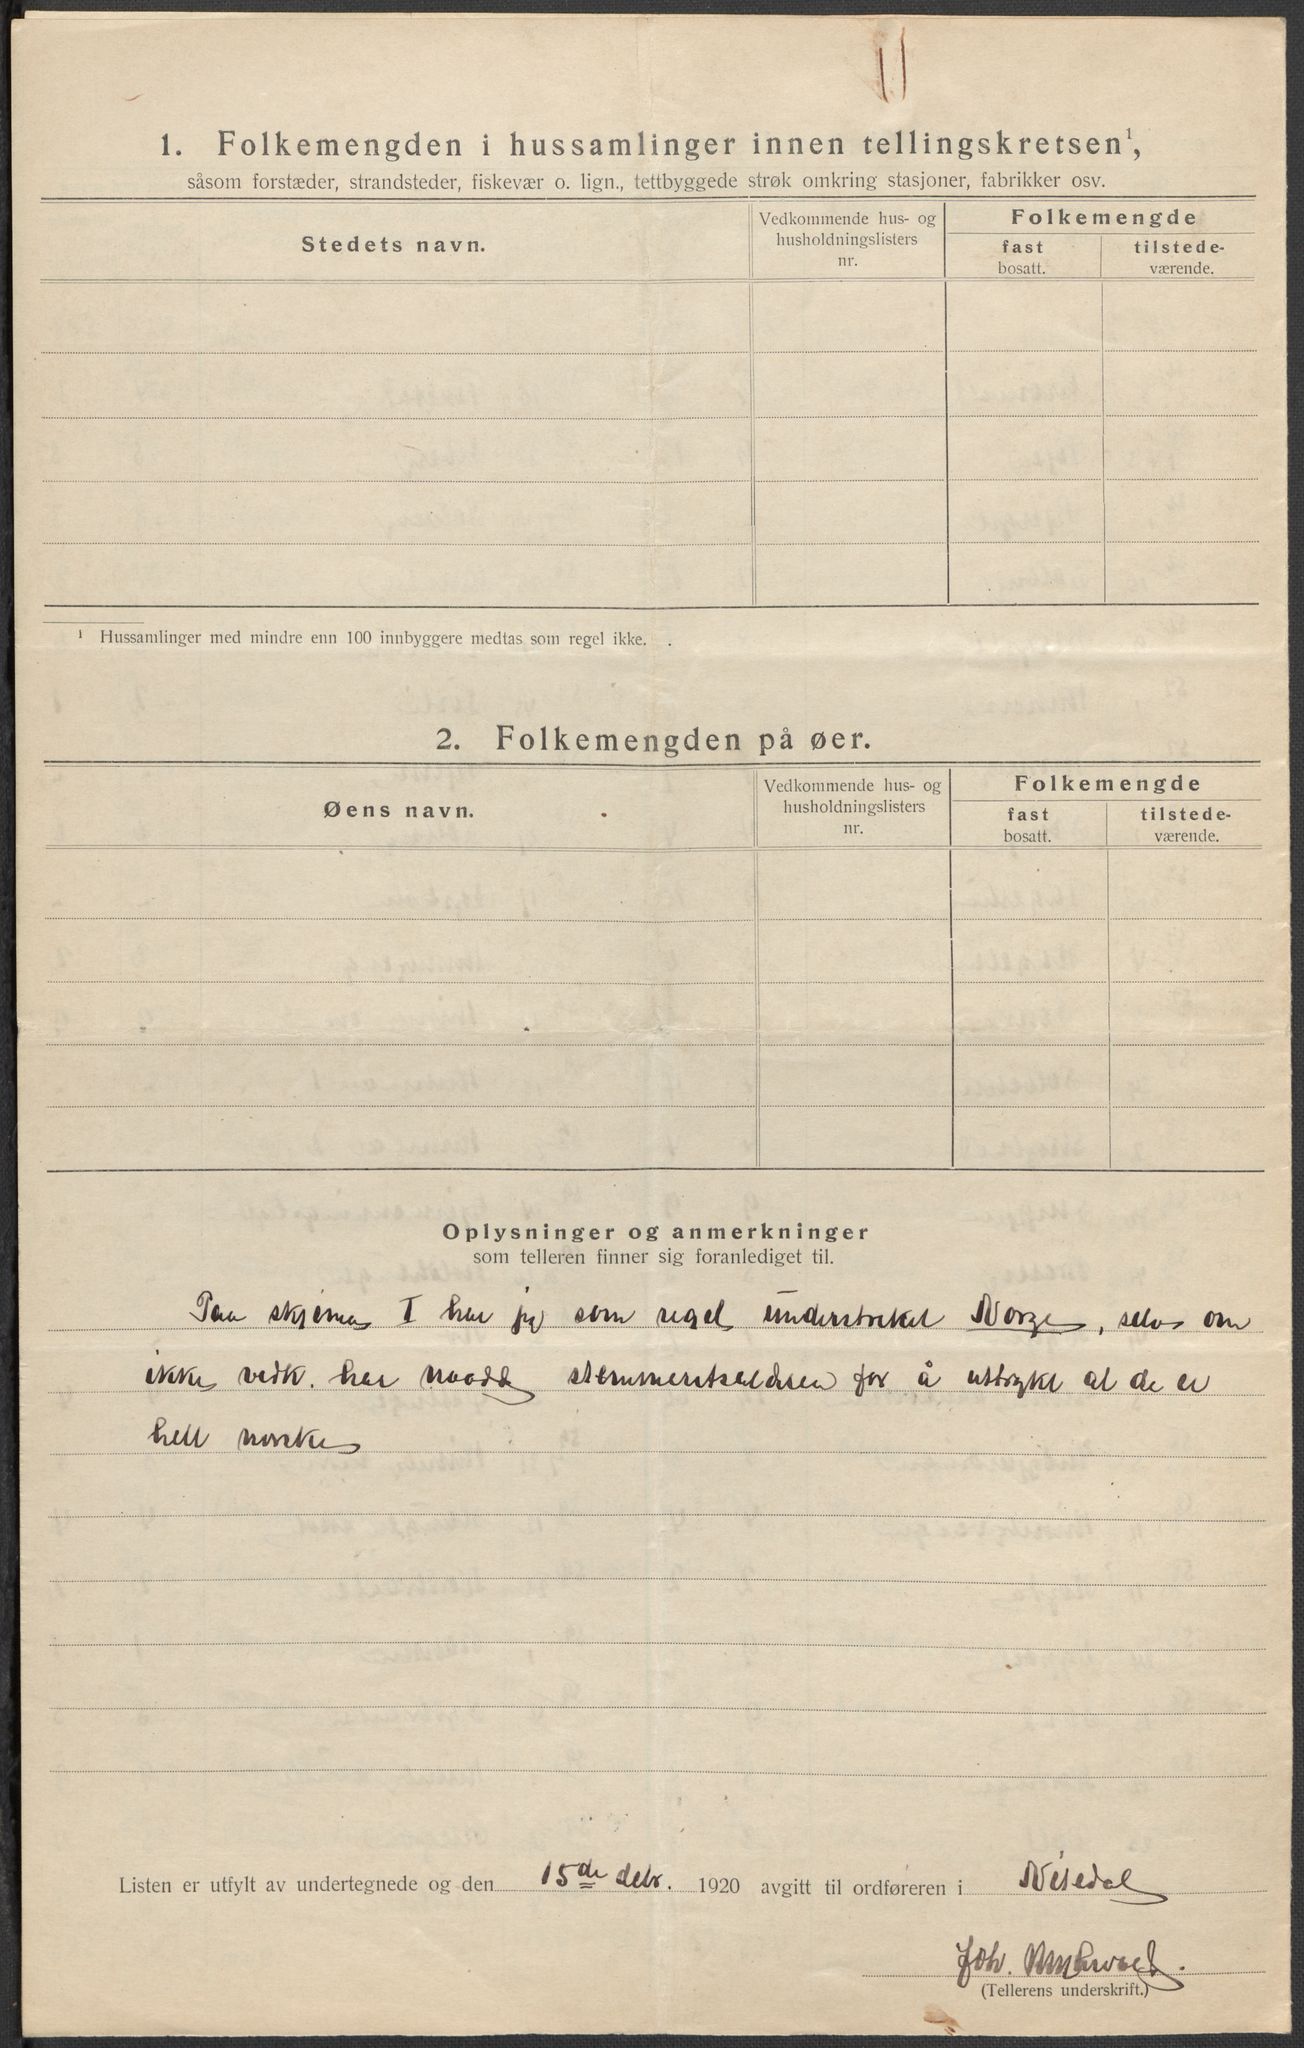 11
1. Folkemengden i hussamlinger innen tellingskretsen¹,
såsom forstæder, strandsteder, fiskevær o. lign., tettbyggede strøk omkring stasjoner, fabrikker osv.
Stedets navn.
Vedkommende hus- og
husholdningslisters
nr.
Folkemengde
fast
bosatt.
tilstede-
værende.
¹ Hussamlinger med mindre enn 100 innbyggere medtas som regel ikke.
2. Folkemengden på øer.
Øens navn.
Vedkommende hus- og
husholdningslisters
nr.
Folkemengde
fast
bosatt.
tilstede-
værende.
Oplysninger og anmerkninger
som telleren finner sig foranlediget til.
Paa skjema I har jeg som regel understreket Norge, selv om
ikke vedk. har naadd stemmeretsalderen for å uttrykt at de er
helt norske
Listen er utfylt av undertegnede og den 15de debr. 1920 avgitt til ordføreren i Nisedal
Joh.
(Tellerens underskrift.)